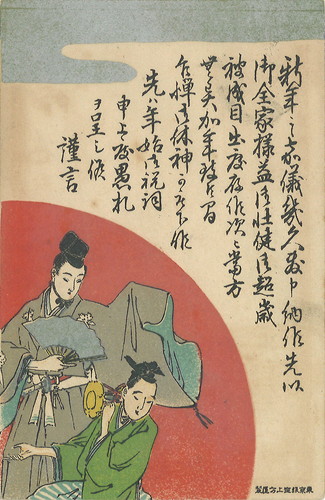 新年之嘉儀幾久敷申納候先以
御全家様益御壮健御超歳
被成目出度存候次ニ當方
無異加年致候間
乍憚御休神可被下候
先ハ年始御祝詞
申上度愚札
ヲ呈し候
謹言
東京銀座上方屋製